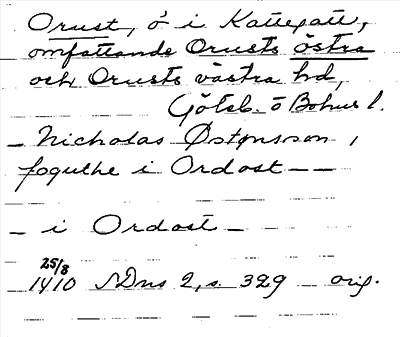 Orust, ö i Kattegatt,
omfattande Orusts östra
och Orusts västra hd,
Göteb. o Bohus l.
- Nicholas Østgnsson,
foguthe i Ordost --
- i Ordost -
25/8
1410 SDns 2, s. 329 orig.